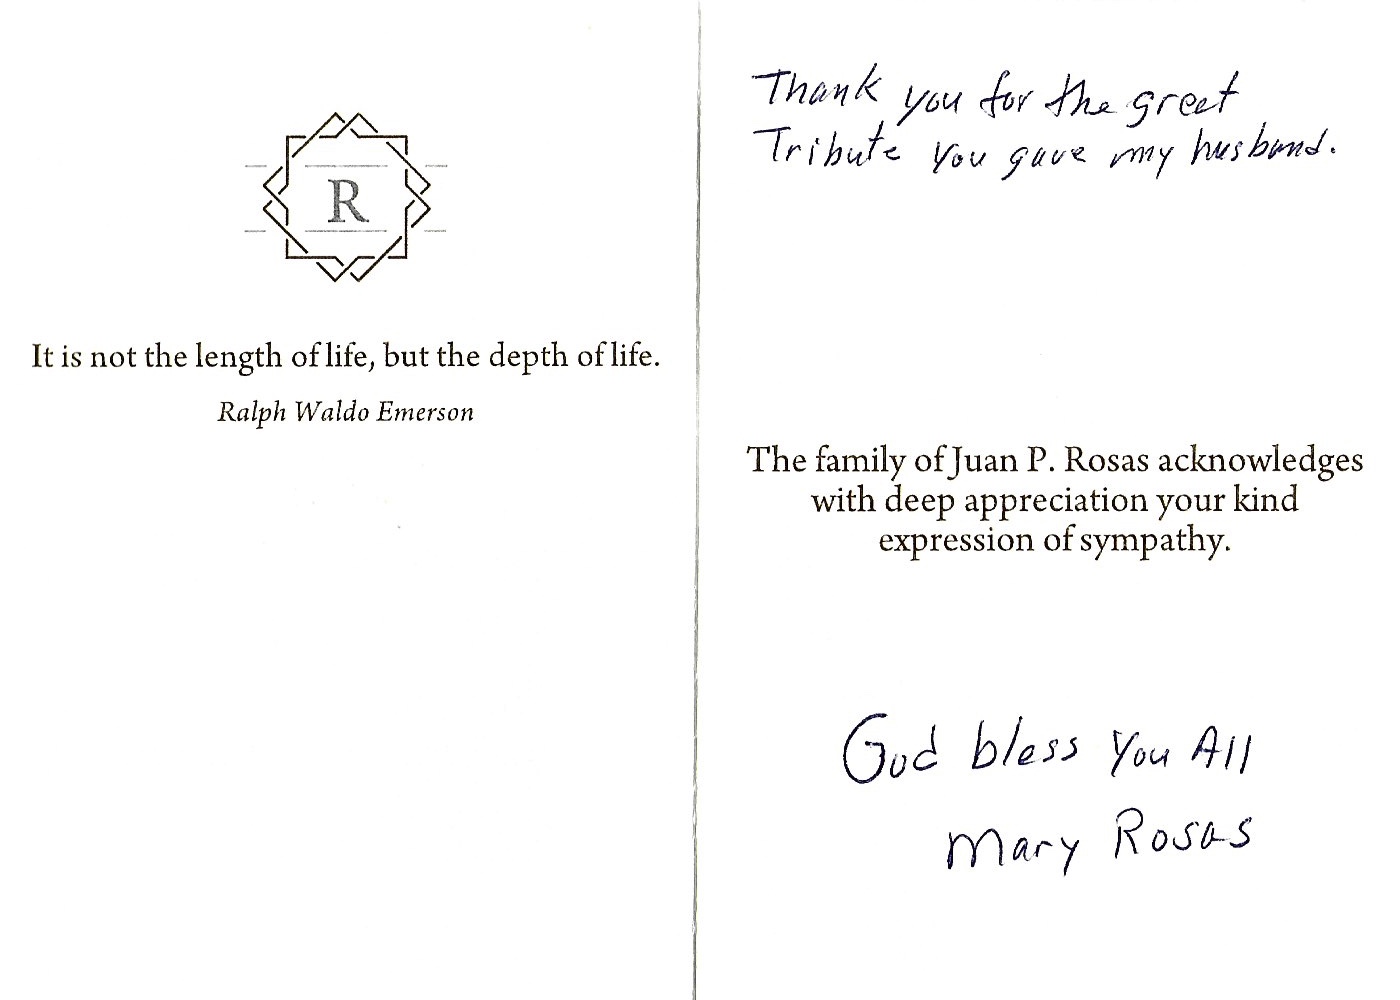 R
It is not the length of life, but the depth of life.
Ralph Waldo Emerson
Thank you for the great
Tribute you gave my husband.
The family of Juan P. Rosas acknowledges
with deep appreciation your kind
expression of sympathy.
God bless You All
Mary Rosas